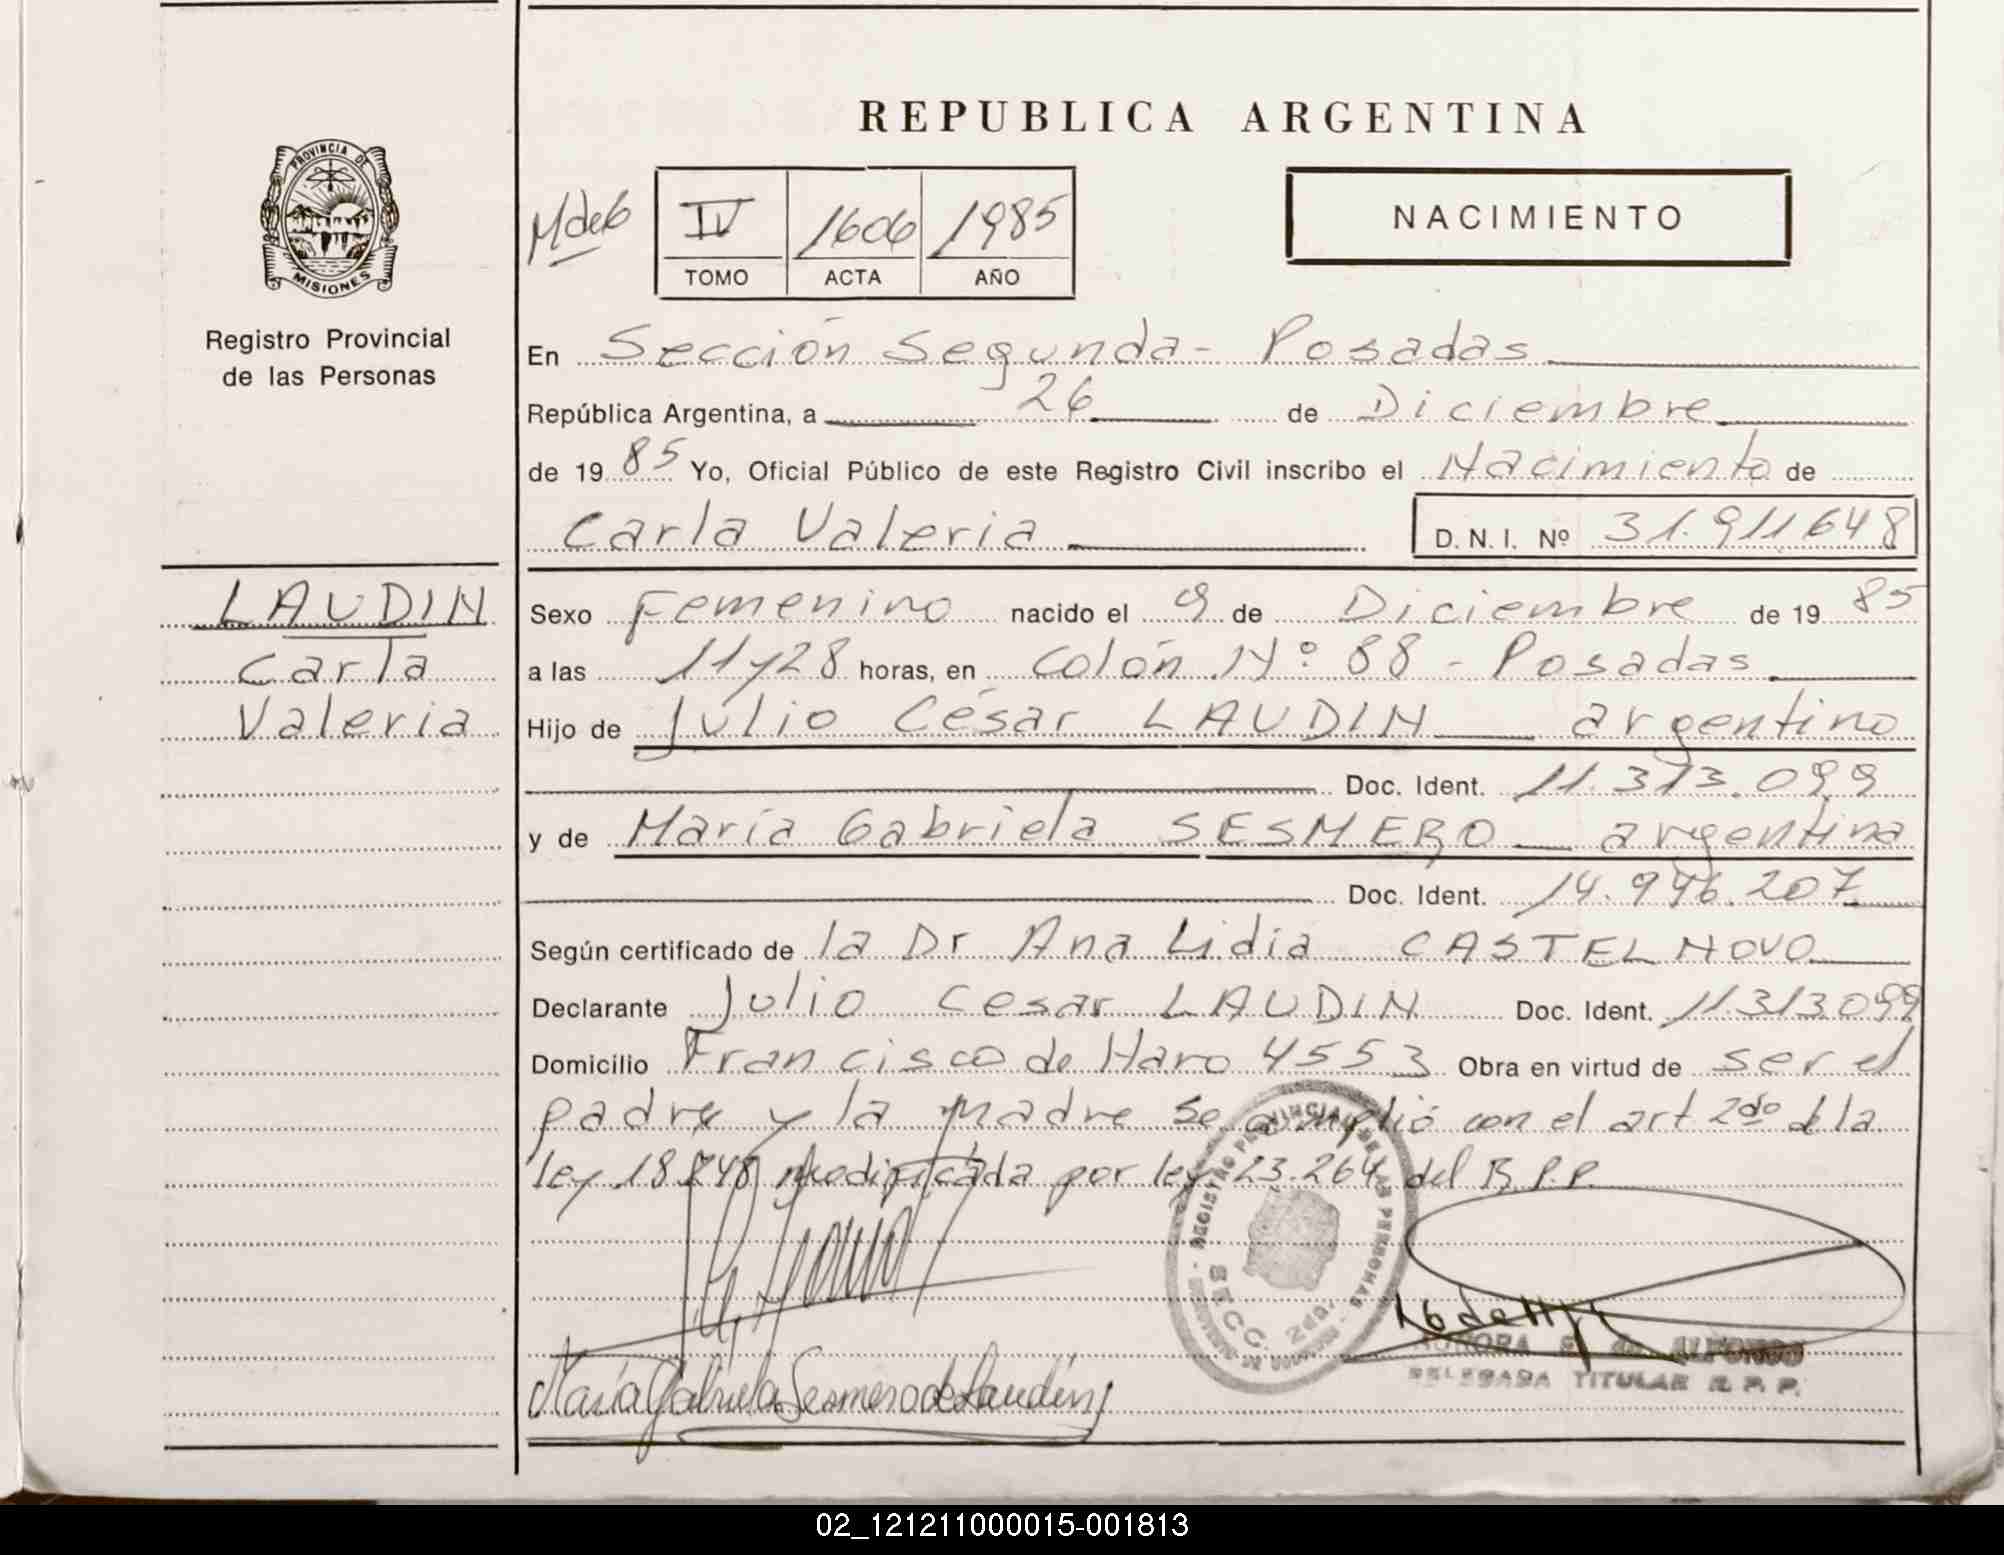 REPUBLICA ARGENTINA
PROVINCIA DE
MISIONES
Registro Provincial
de las Personas
M de 6
IV 1606 1985
TOMO ACTA AÑO
NACIMIENTO
En Sección Segunda - Posadas
República Argentina, a 26 de Diciembre
de 1985 Yo, Oficial Público de este Registro Civil inscribo el Nacimiento de
Carla Valeria D. N. I. Nº 31.911648
LAUDIN
Carla
Valeria
Sexo Femenino nacido el 9 de Diciembre de 1985
a las 11 y 28 horas, en Colón Nº 88 - Posadas
Hijo de Julio César LAUDIN argentino
Doc. Ident. 11.313.099
y de María Gabriela SESMERO argentina
Doc. Ident. 14.946.207
Según certificado de la Dr Ana Lidia CASTELNOVO
Declarante Julio Cesar LAUDIN Doc. Ident. 11.313.099
Domicilio Francisco de Haro 4553 Obra en virtud de ser el
padre y la madre se amplió con el art 2do d la
ley 18.248 modificada por ley 23.264 del R.P.P.
REGISTRO PROVINCIAL DE LAS PERSONAS
SECC. 2da.
María Gabriela Sesmero de Laudin
AURORA ALFONSO
DELEGADA TITULAR R. P. P.
02_121211000015-001813